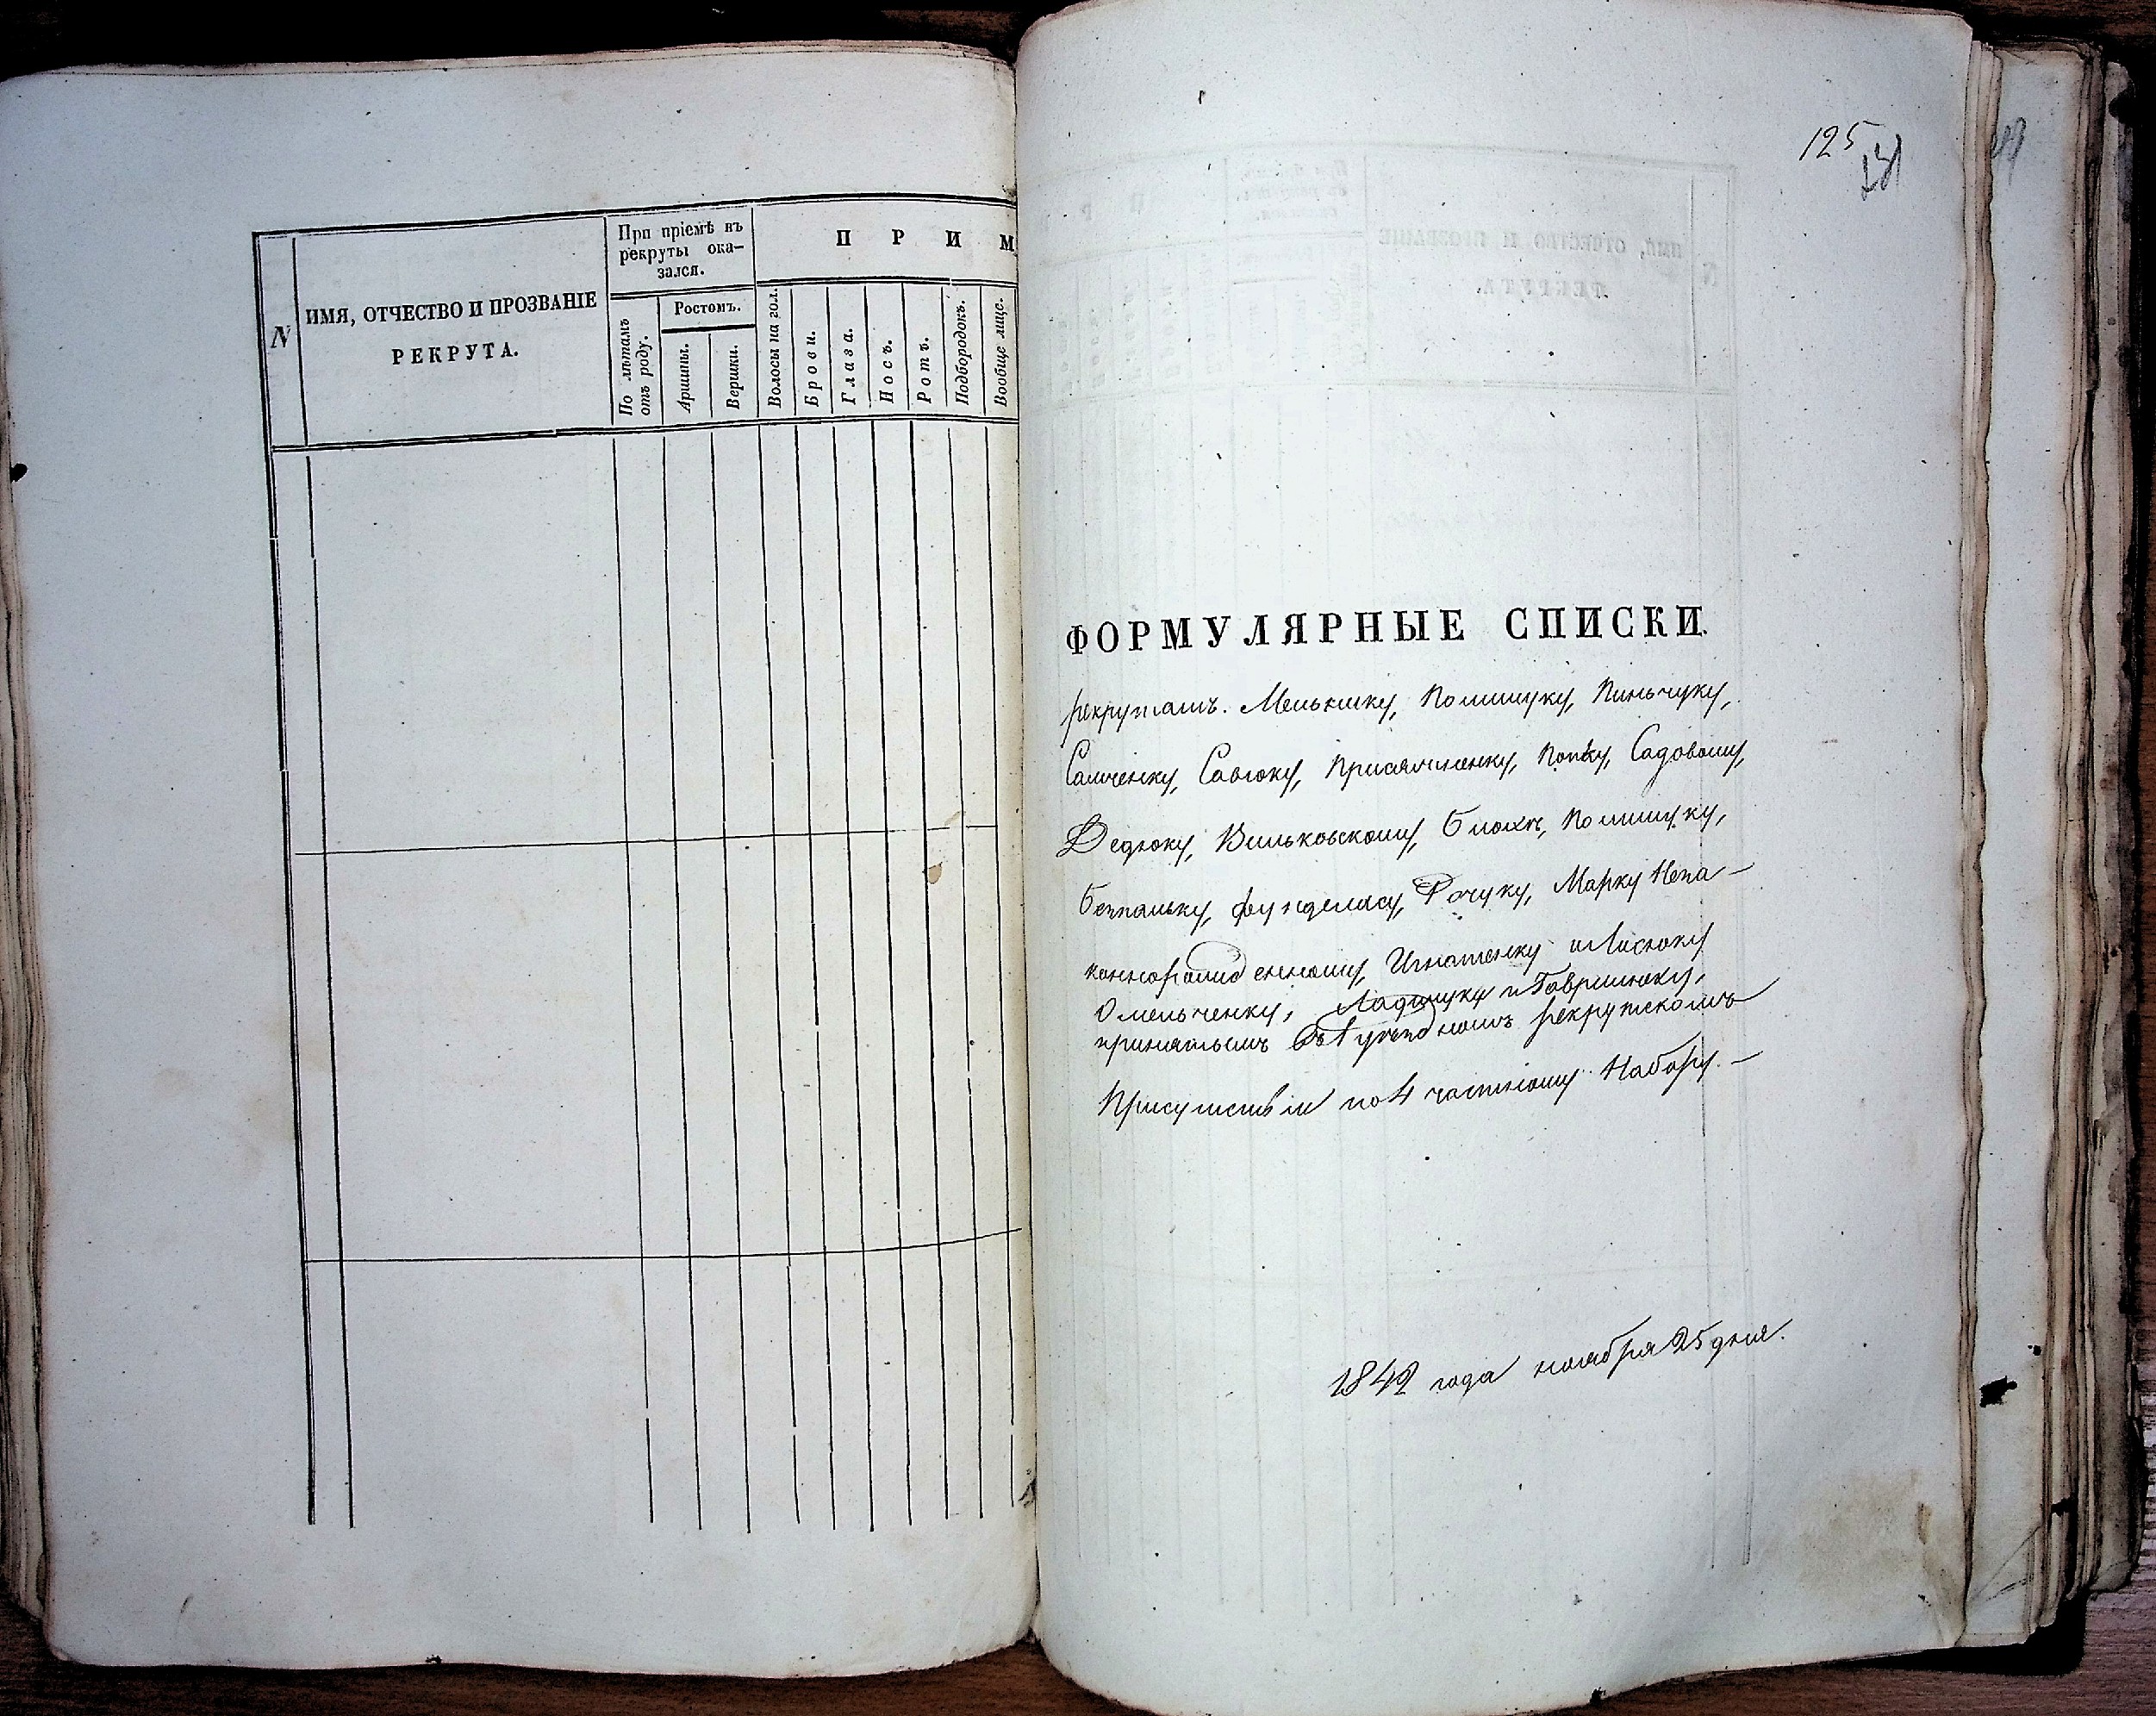 N
ИМЯ, ОТЧЕСТВО И ПРОЗВАНІЕ
РЕКРУТА.
При пріемѣ въ
рекруты ока-
зался.
По лѣтамъ
отъ роду.
Ростомъ.
Аршины.
Вершки.
П Р И М
Волосы на гол.
Брови.
Глаза.
Носъ.
Ротъ.
Подбородокъ.
Вообще лице.
125
ФОРМУЛЯРНЫЕ СПИСКИ.
рекрутамъ. Полищуку, Пиньчуку,
Самченку, Савюку, Присяжненку, Попку, Садовому,
Дедюку, Вильковскому, Блохѣ, Полищуку,
Рачуку, Марку Непа-
Игнатенку и Лисюку
Омельченку, Ладищуку и Гаврилюку,
принятымъ въ уѣздномъ рекрутскомъ
Присутствіи по 4 частному Набору. —
1842 года ноября 25 дня.